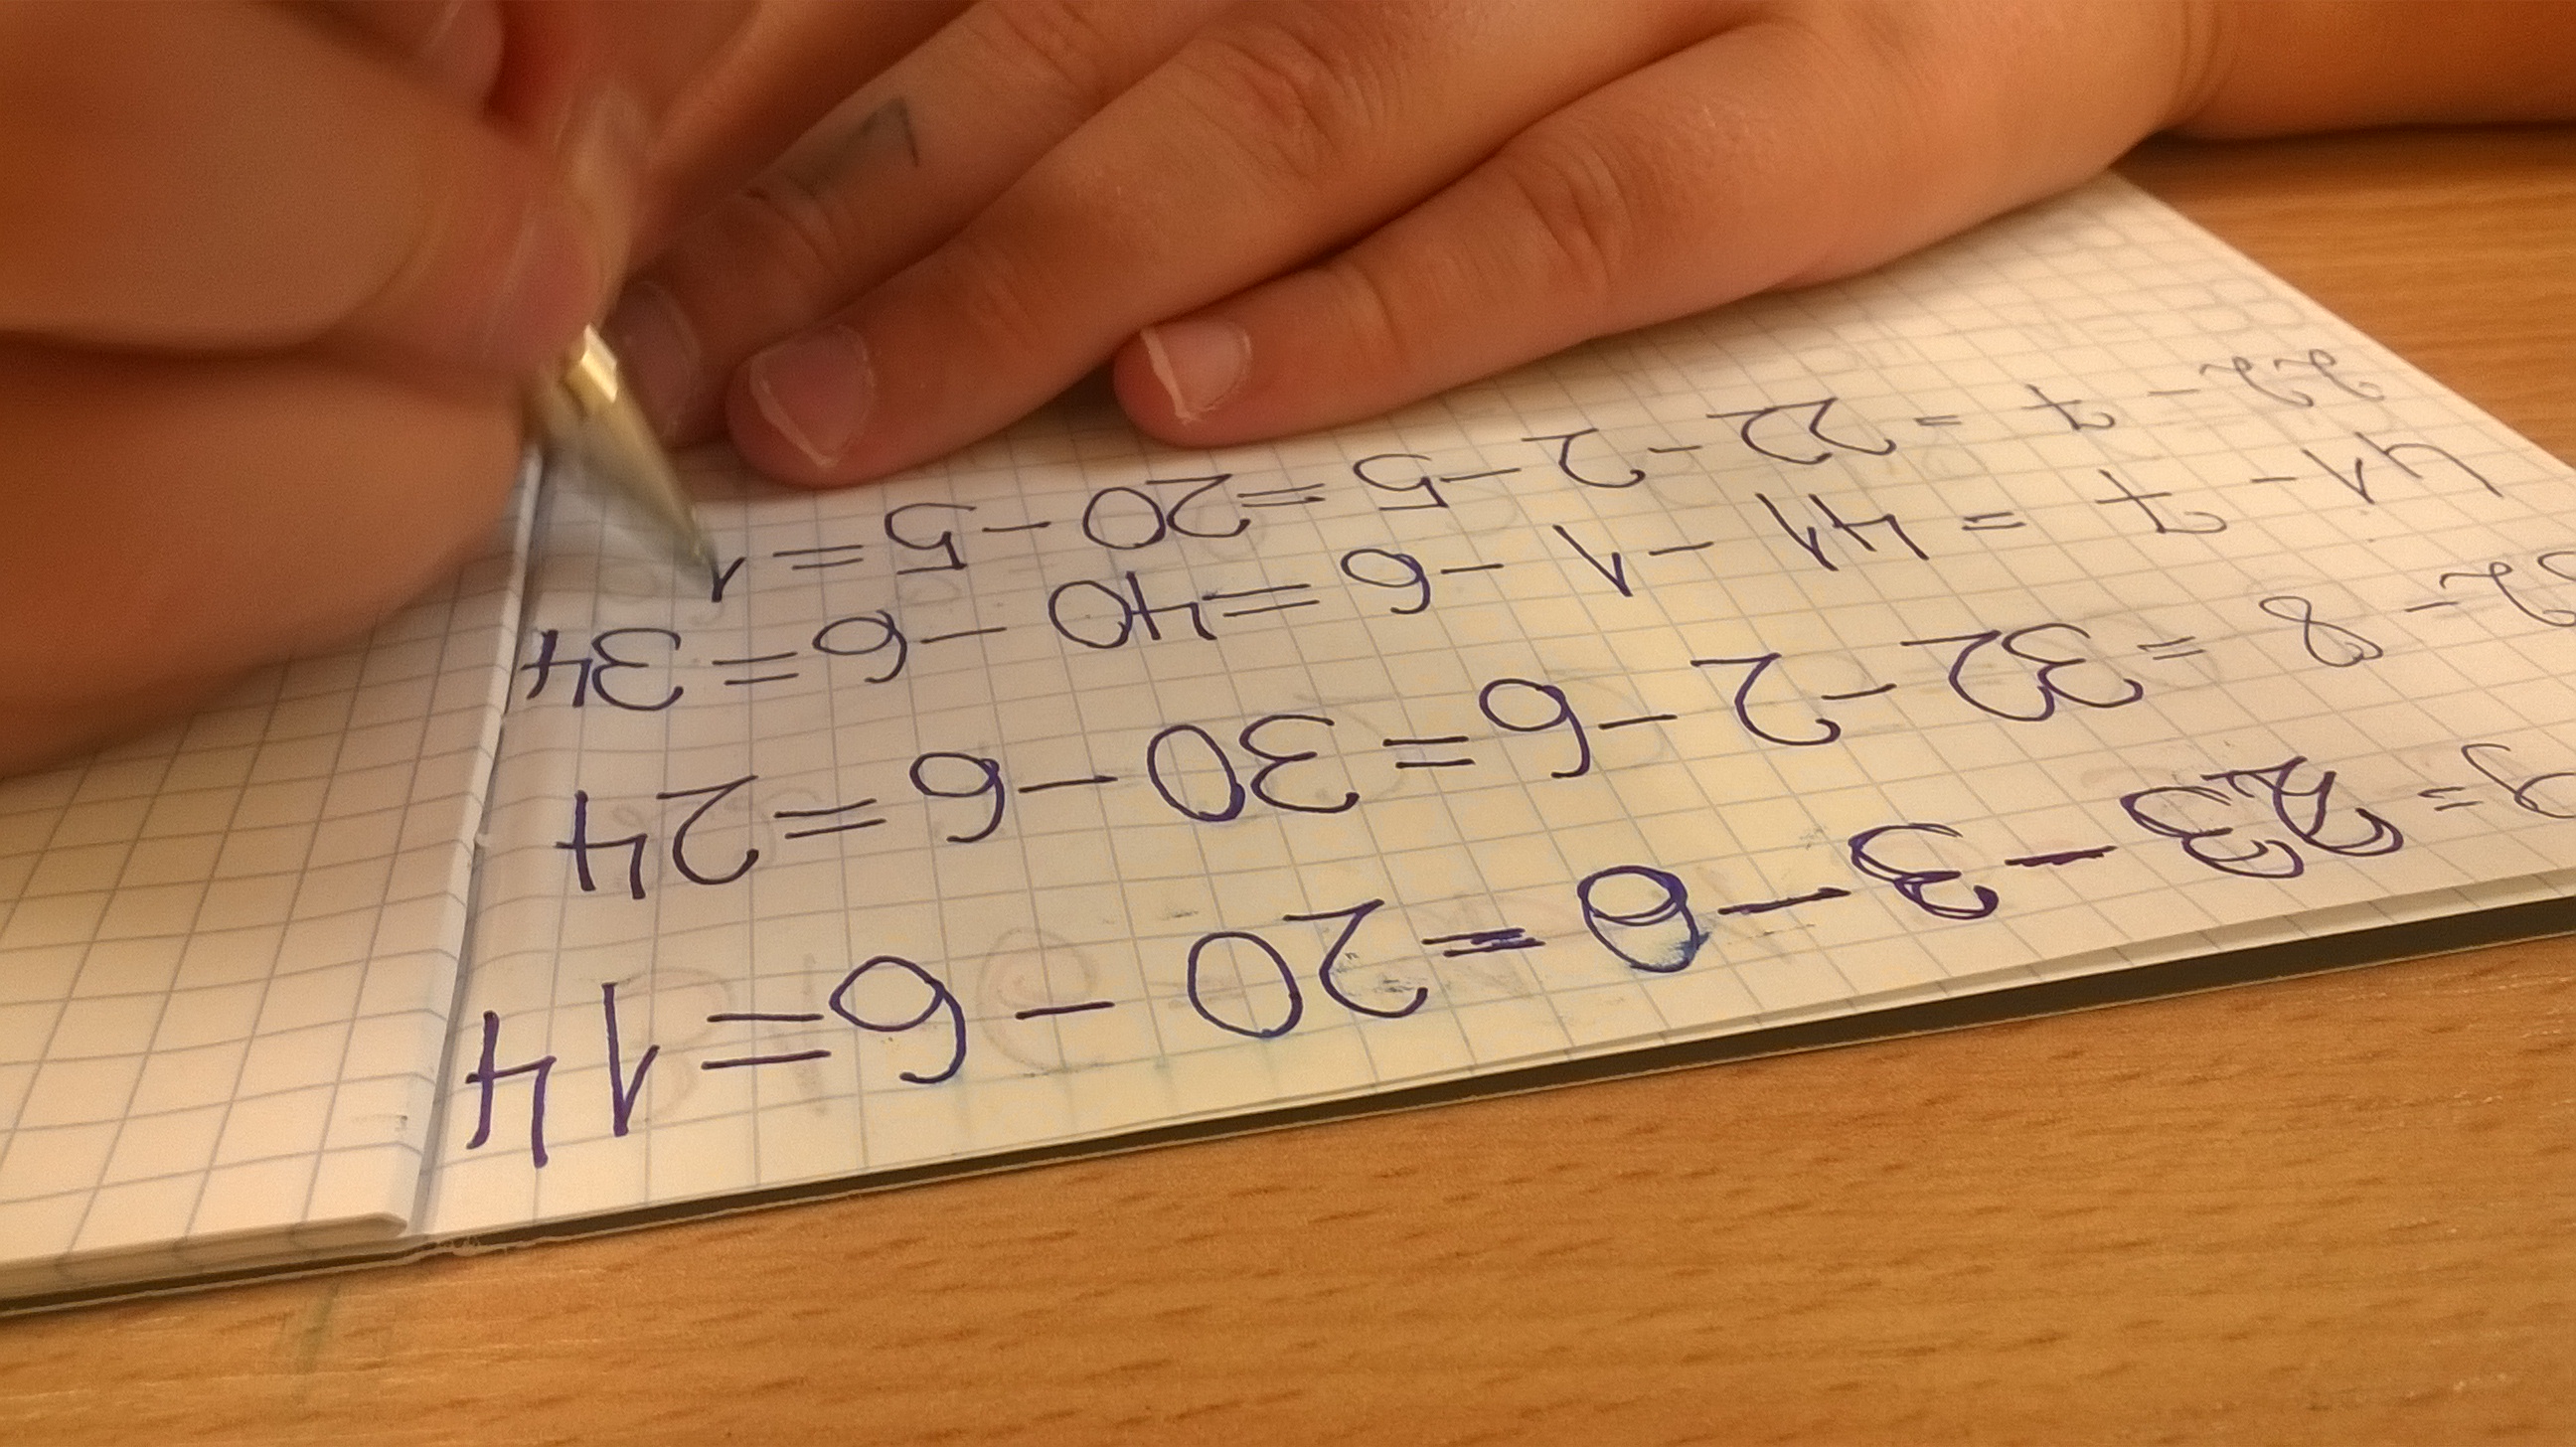 9 = 23 - 3 - 6 = 20 - 6 = 14
32 - 8 = 32 - 2 - 6 = 30 - 6 = 24
41 - 7 = 41 - 1 - 6 = 40 - 6 = 34
22 - 7 = 22 - 2 - 5 = 20 - 5 = 1